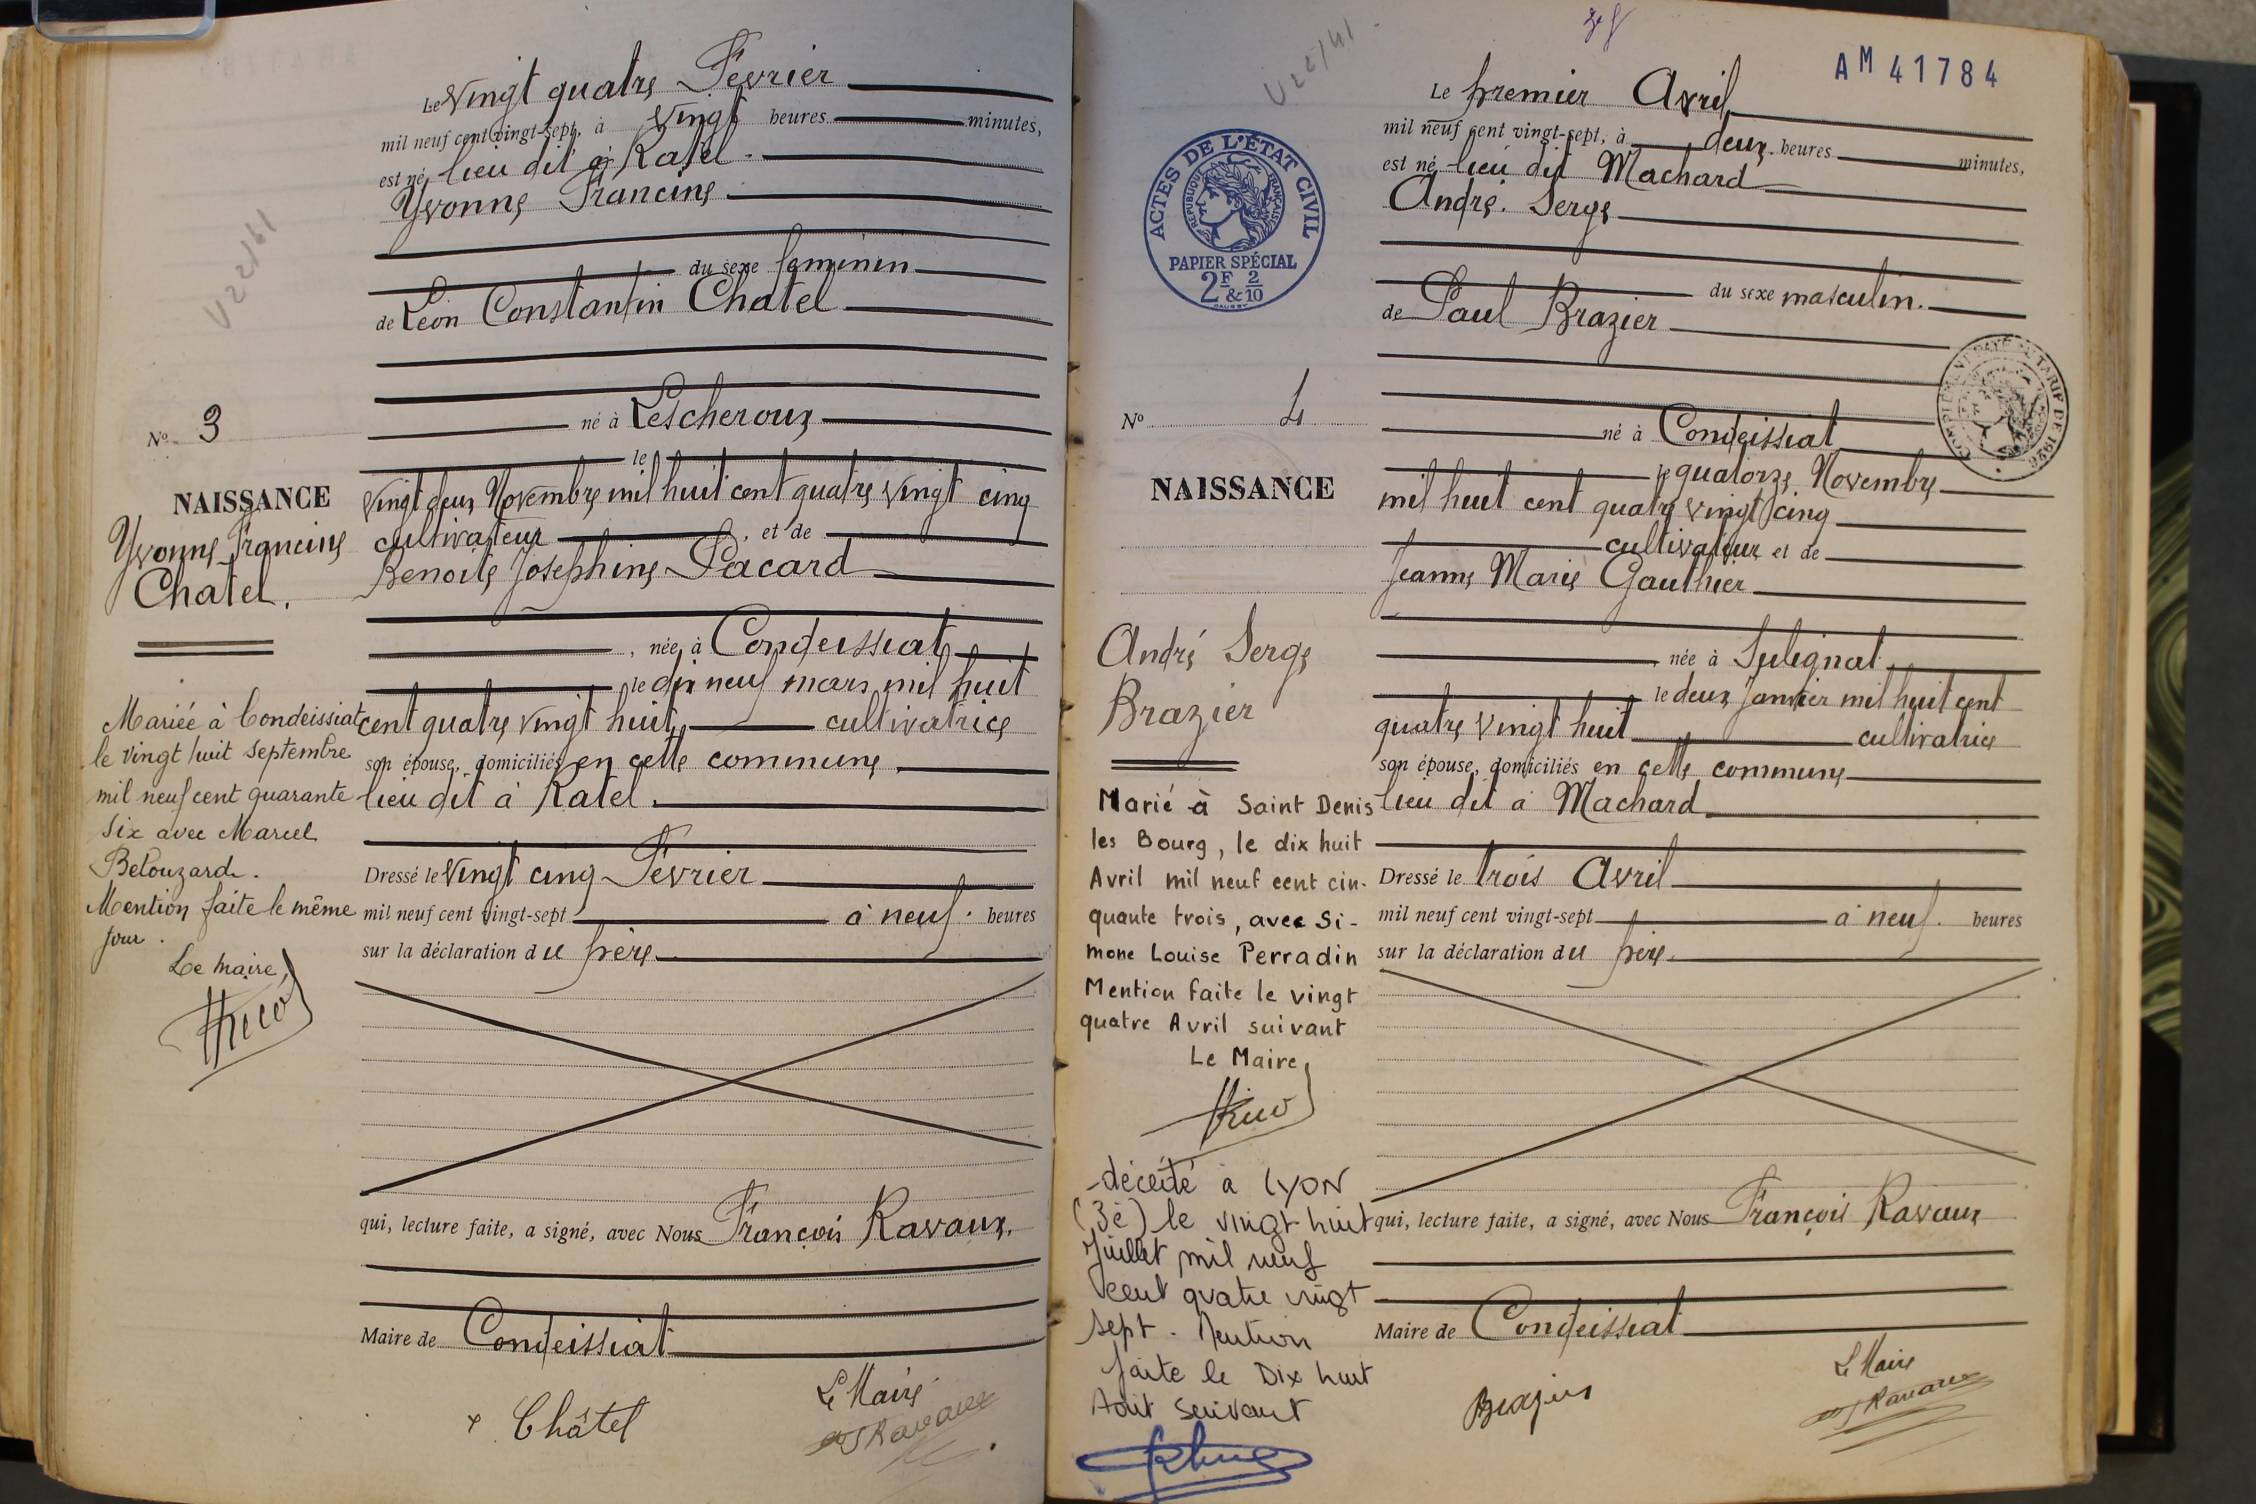 Le vingt quatre Février
mil neuf cent vingt-sept, à vingt heures minutes,
est né, lieu dit à Ratel.
Yvonne Francine
du sexe feminin
de Léon Constantin Chatel
né à Lescheroux
le
vingt deux Novembre mil huit cent quatre vingt cinq
cultivateur, et de
Benoite Josephine Pacard
, née à Condeissiat
le dix neuf mars mil huit
cent quatre vingt huit, cultivatrice
son épouse, domiciliés en cette commune,
lieu dit à Ratel.
Dressé le vingt cinq Février
mil neuf cent vingt-sept à neuf. heures
sur la déclaration du père
qui, lecture faite, a signé, avec Nous François Ravaux.
Maire de Condeissiat
Le Maire
Châtel
Ravaux
No 3
NAISSANCE
Yvonne Francine
Chatel.
Mariée à Condeissiat
le vingt huit septembre
mil neuf cent quarante
six avec Marcel
Belouzard.
Mention faite le même
jour.
Le maire,
AM 41784
ACTES DE L'ÉTAT CIVIL
RÉPUBLIQUE FRANÇAISE
PAPIER SPÉCIAL
2F & 2/10
Le premier Avril
mil neuf cent vingt-sept, à deux. heures minutes,
est né, lieu dit Machard
André. Serge
du sexe masculin.
de Paul Brazier
COMPLÉMENT PAYÉ AU TARIF DE 1926
né à Condeissiat
le quatorze Novembre
mil huit cent quatre vingt cinq
cultivateur et de
Jeanne Marie Gauthier
, née à Sulignat
le deux Janvier mil huit cent
quatre vingt huit cultivatrice
son épouse, domiciliés en cette commune
lieu dit à Machard
Dressé le trois Avril
mil neuf cent vingt-sept à neuf. heures
sur la déclaration du père.
qui, lecture faite, a signé, avec Nous François Ravaux
Maire de Condeissiat
Le Maire
Brazier
Ravaux
No 4
NAISSANCE
André Serge
Brazier
Marié à Saint Denis
les Bourg, le dix huit
Avril mil neuf cent cin-
quante trois, avec Si-
mone Louise Perradin
Mention faite le vingt
quatre Avril suivant
Le Maire,
-décédé à LYON
(3è) le vingt huit
Juillet mil neuf
cent quatre vingt
sept. Mention
faite le Dix huit
Aout suivant